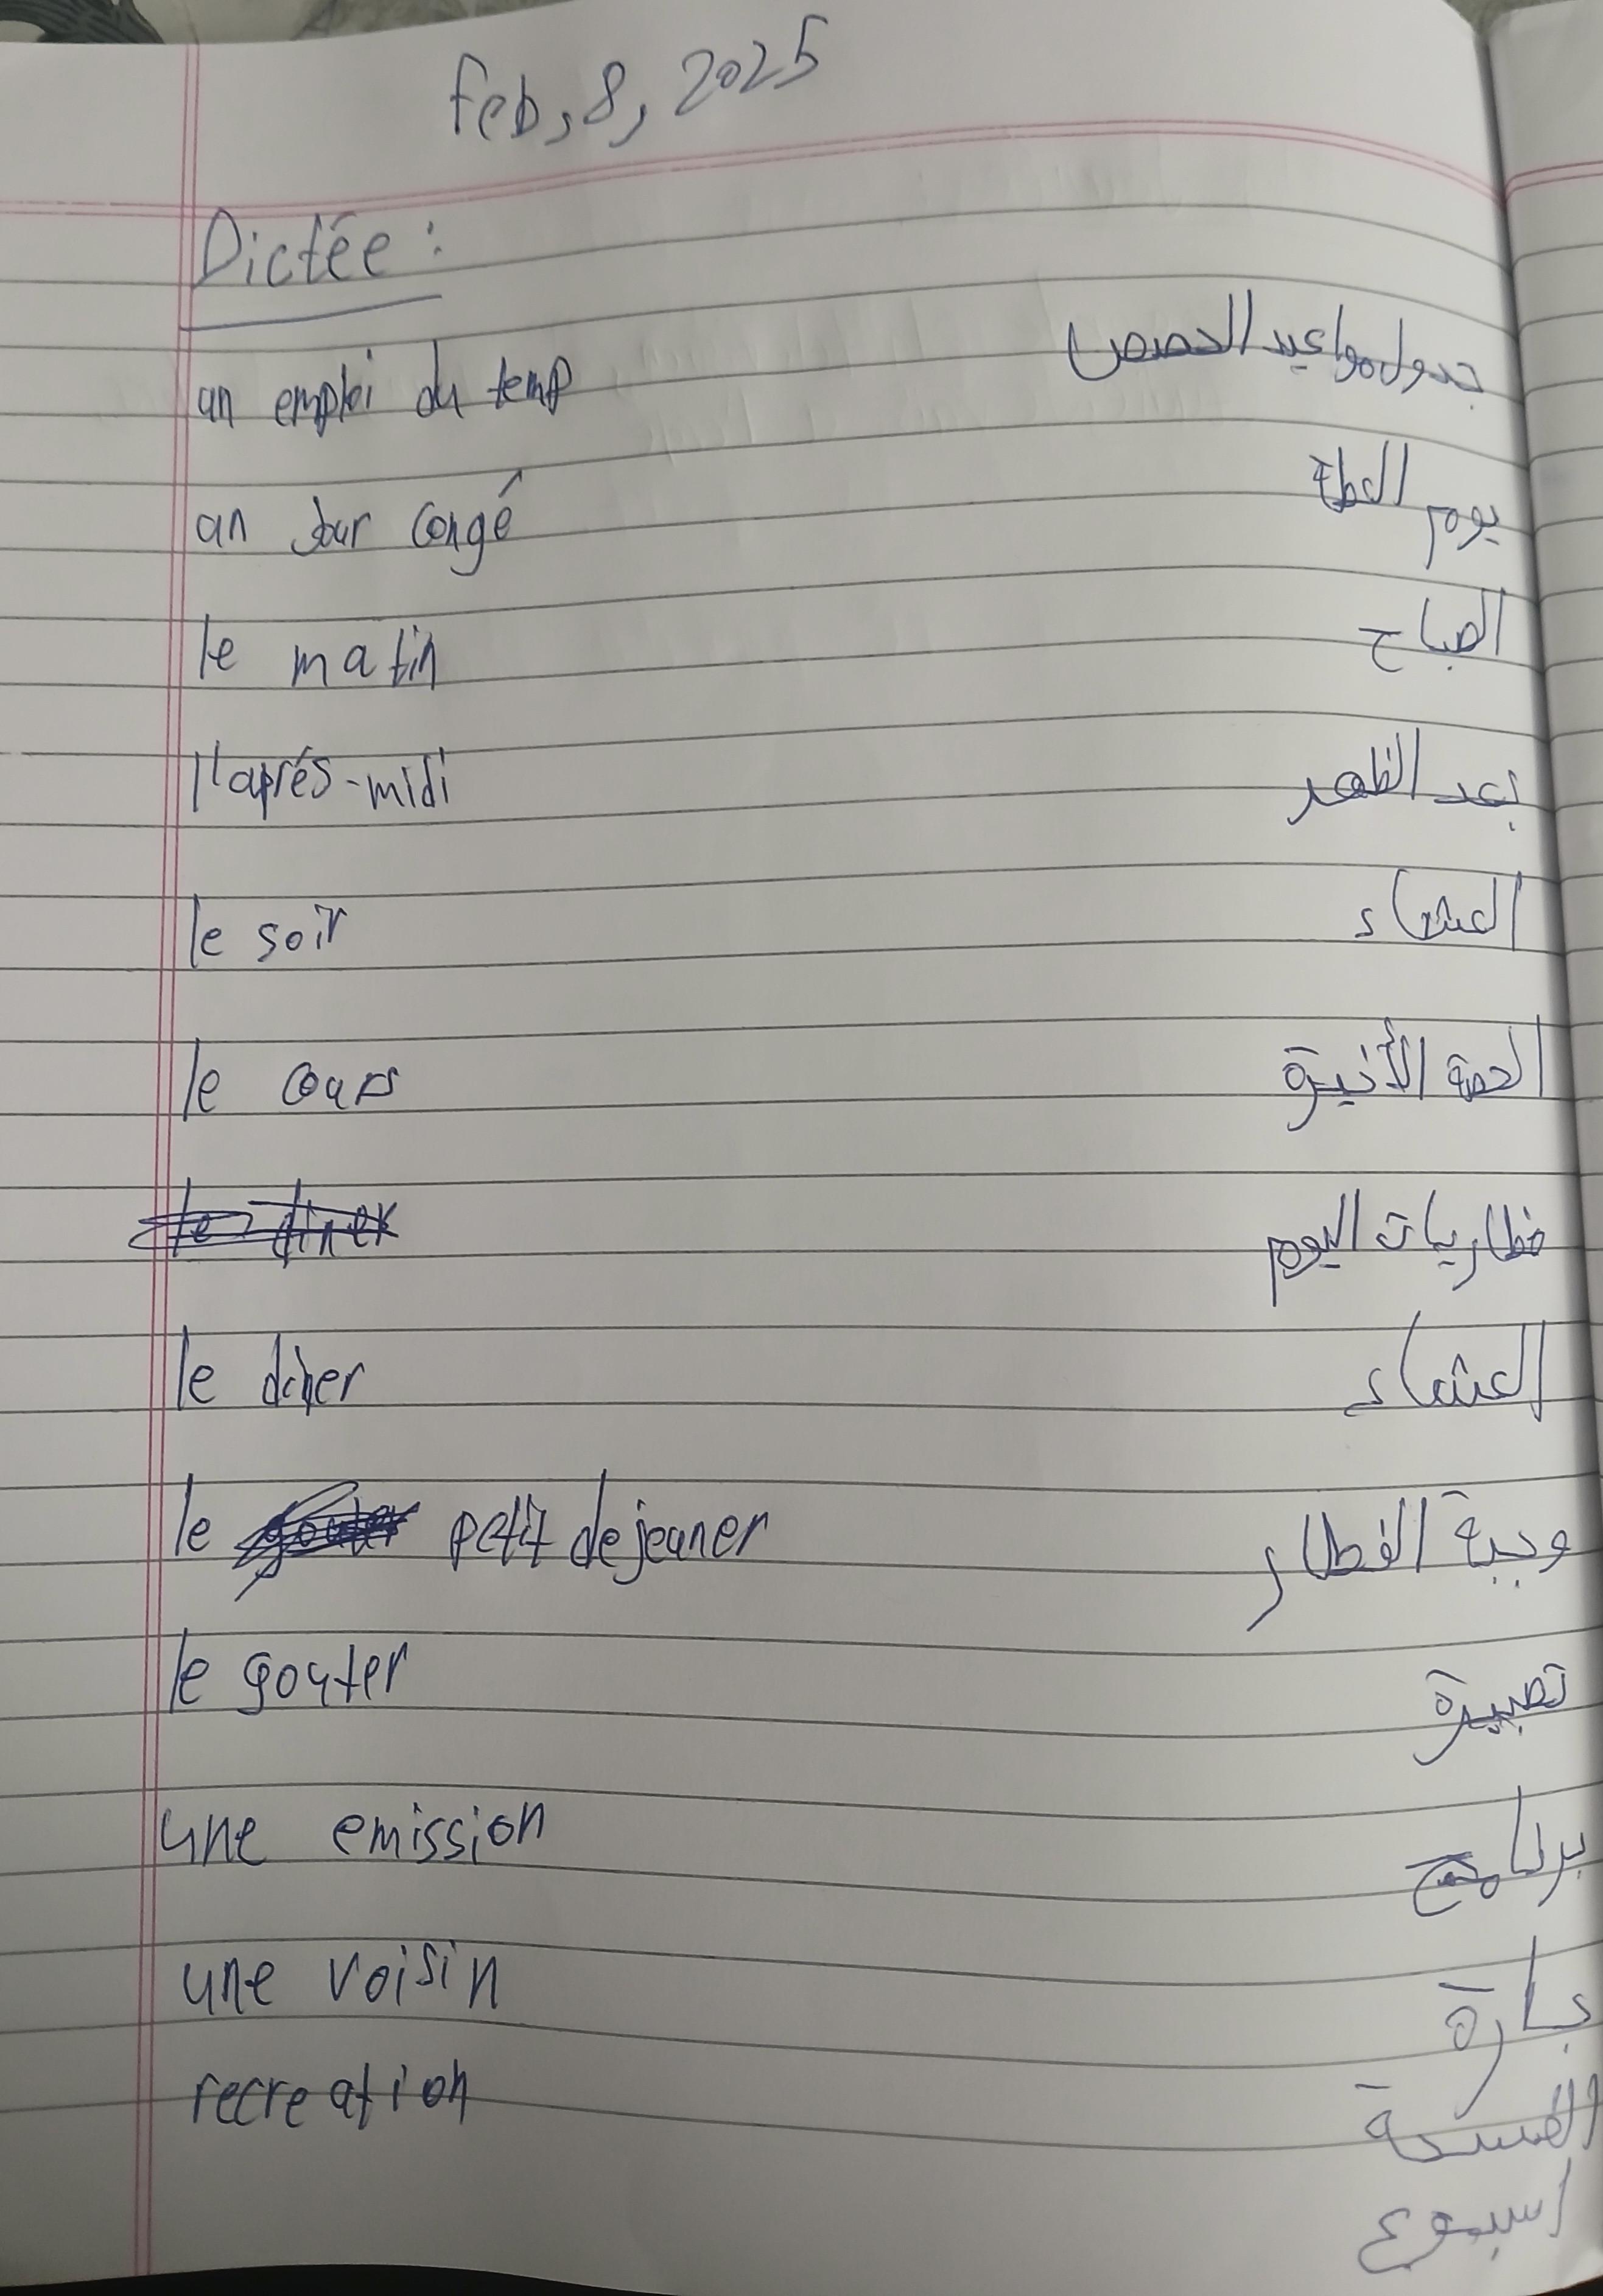 Feb, 8, 2025
Dictée :
un emploi du temp جدول مواعيد الحصص
un Jour congé يوم العطلة
le matin الصباح
l'aprés-midi بعد الظهر
le soir العشاء
le cours الحصة الأخيرة
le diner اليوم
le diner العشاء
le gouter petit dejeuner وجبة الفطار
le gouter تصبيرة
une emission برنامج
une voisin جارة
recreation الفسحة
اسبوع